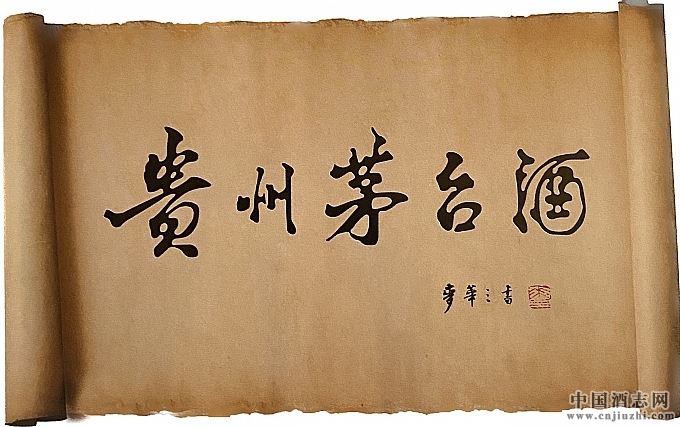 貴州茅台酒
麥華三書
中国酒志网
www.cnjiuzhi.com